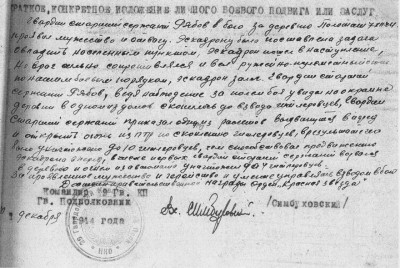 КРАТКОЕ, КОНКРЕТНОЕ ИЗЛОЖЕНИЕ ЛИЧНОГО БОЕВОГО ПОДВИГА ИЛИ ЗАСЛУГ
Гвардии старший сержант Рябов в бою за деревню
проявил мужество и отвагу. Эскадрону была поставлена задача
овладеть населенным пунктом. Эскадрон пошел в наступление,
Но враг сильно сопротивлялся и вел ружейно-пулеметный
по нашим боевым порядкам, эскадрон залег. Гвардии старший
сержант Рябов, ведя наблюдение за полем боя увидел на окраине
деревни в одном из домов скопилось до взвода гитлеровцев, Гвардии
Старший сержант приказал одному
и открыть огонь из ПТР по скоплению гитлеровцев, в результате чего
было уничтожено до 10 гитлеровцев, чем способствовал продвижению
эскадрона вперед, в числе первых гвардии старший сержант ворвался
в деревню и огнем из автомата уничтожил до 7 гитлеровцев.
За проявленное мужество и геройство и умение управлять взводом в бою
Достоин правительственной награды орден "Красная звезда"
Командир 59 Гв. КП
Гв. Подполковник
/Симбуховский/
декабря 1944 года